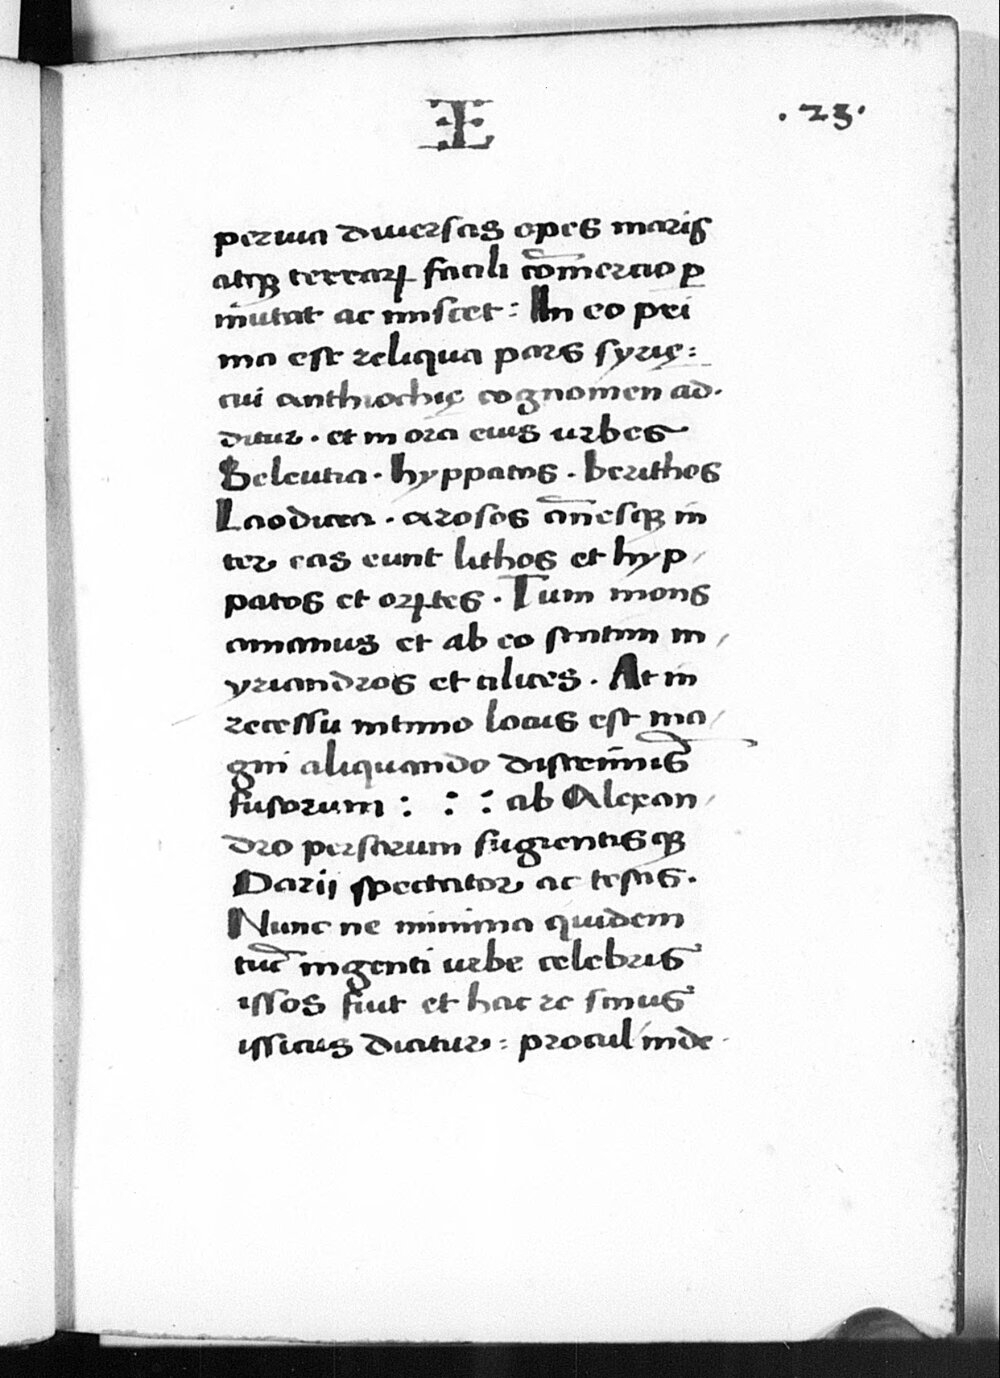 . 23 .
peruia diuersas opes maris
atqꝫ terrarꝝ facili cōmercio ꝑ
mutat ac miscet : In eo pri
ma est reliqua pars syrię :
cui anthiochię cognomen ad.
ditur . et in ora eius urbes
Seleutia . hyppatos . berithos
Laodicea . arosos ānesqꝫ in
ter eas eunt lithos et hyp
patos et orꝓtes . Tum mons
amanus et ab eo statim m
yriandros et cilices . At in
recessu intimo locus est ma
gni aliquando discriminis
fusorum : : : ab Alexan
dro persarum fugientisqꝫ
Darii spectator ac testis .
Nunc ne minima quidem
tūc ingenti urbe celebris
issos fuit et hac re sinus
issicus dicitur : procul inde